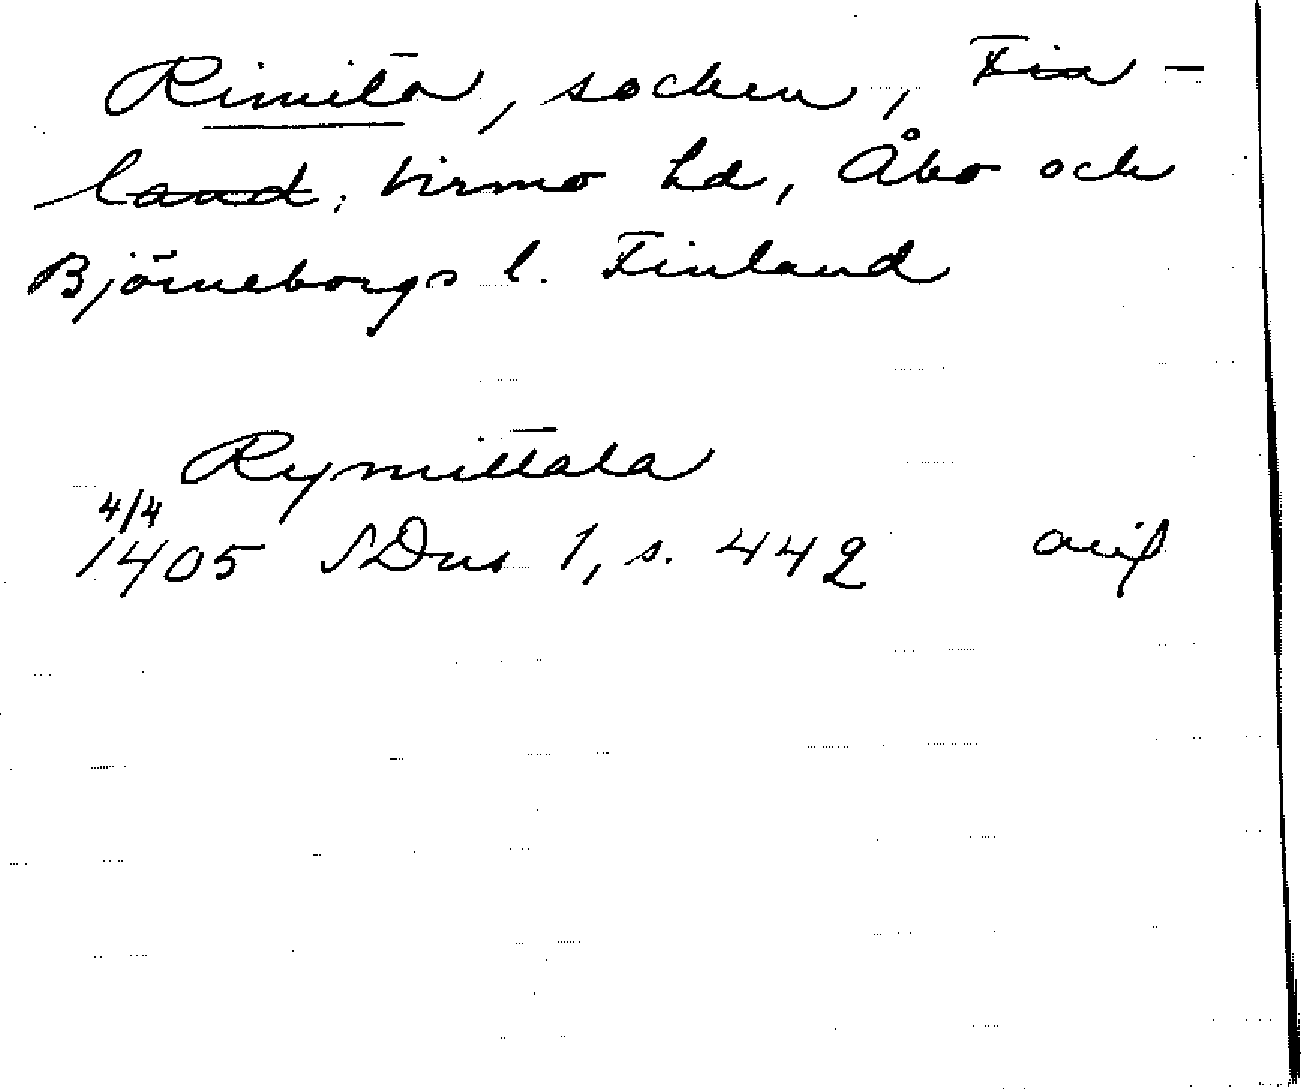 Rimito, socken, Fin-
land, Virmo hd, Åbo och
Björneborgs l. Finland
Rymittala
4/4
1405 SDns 1, s. 442 avif